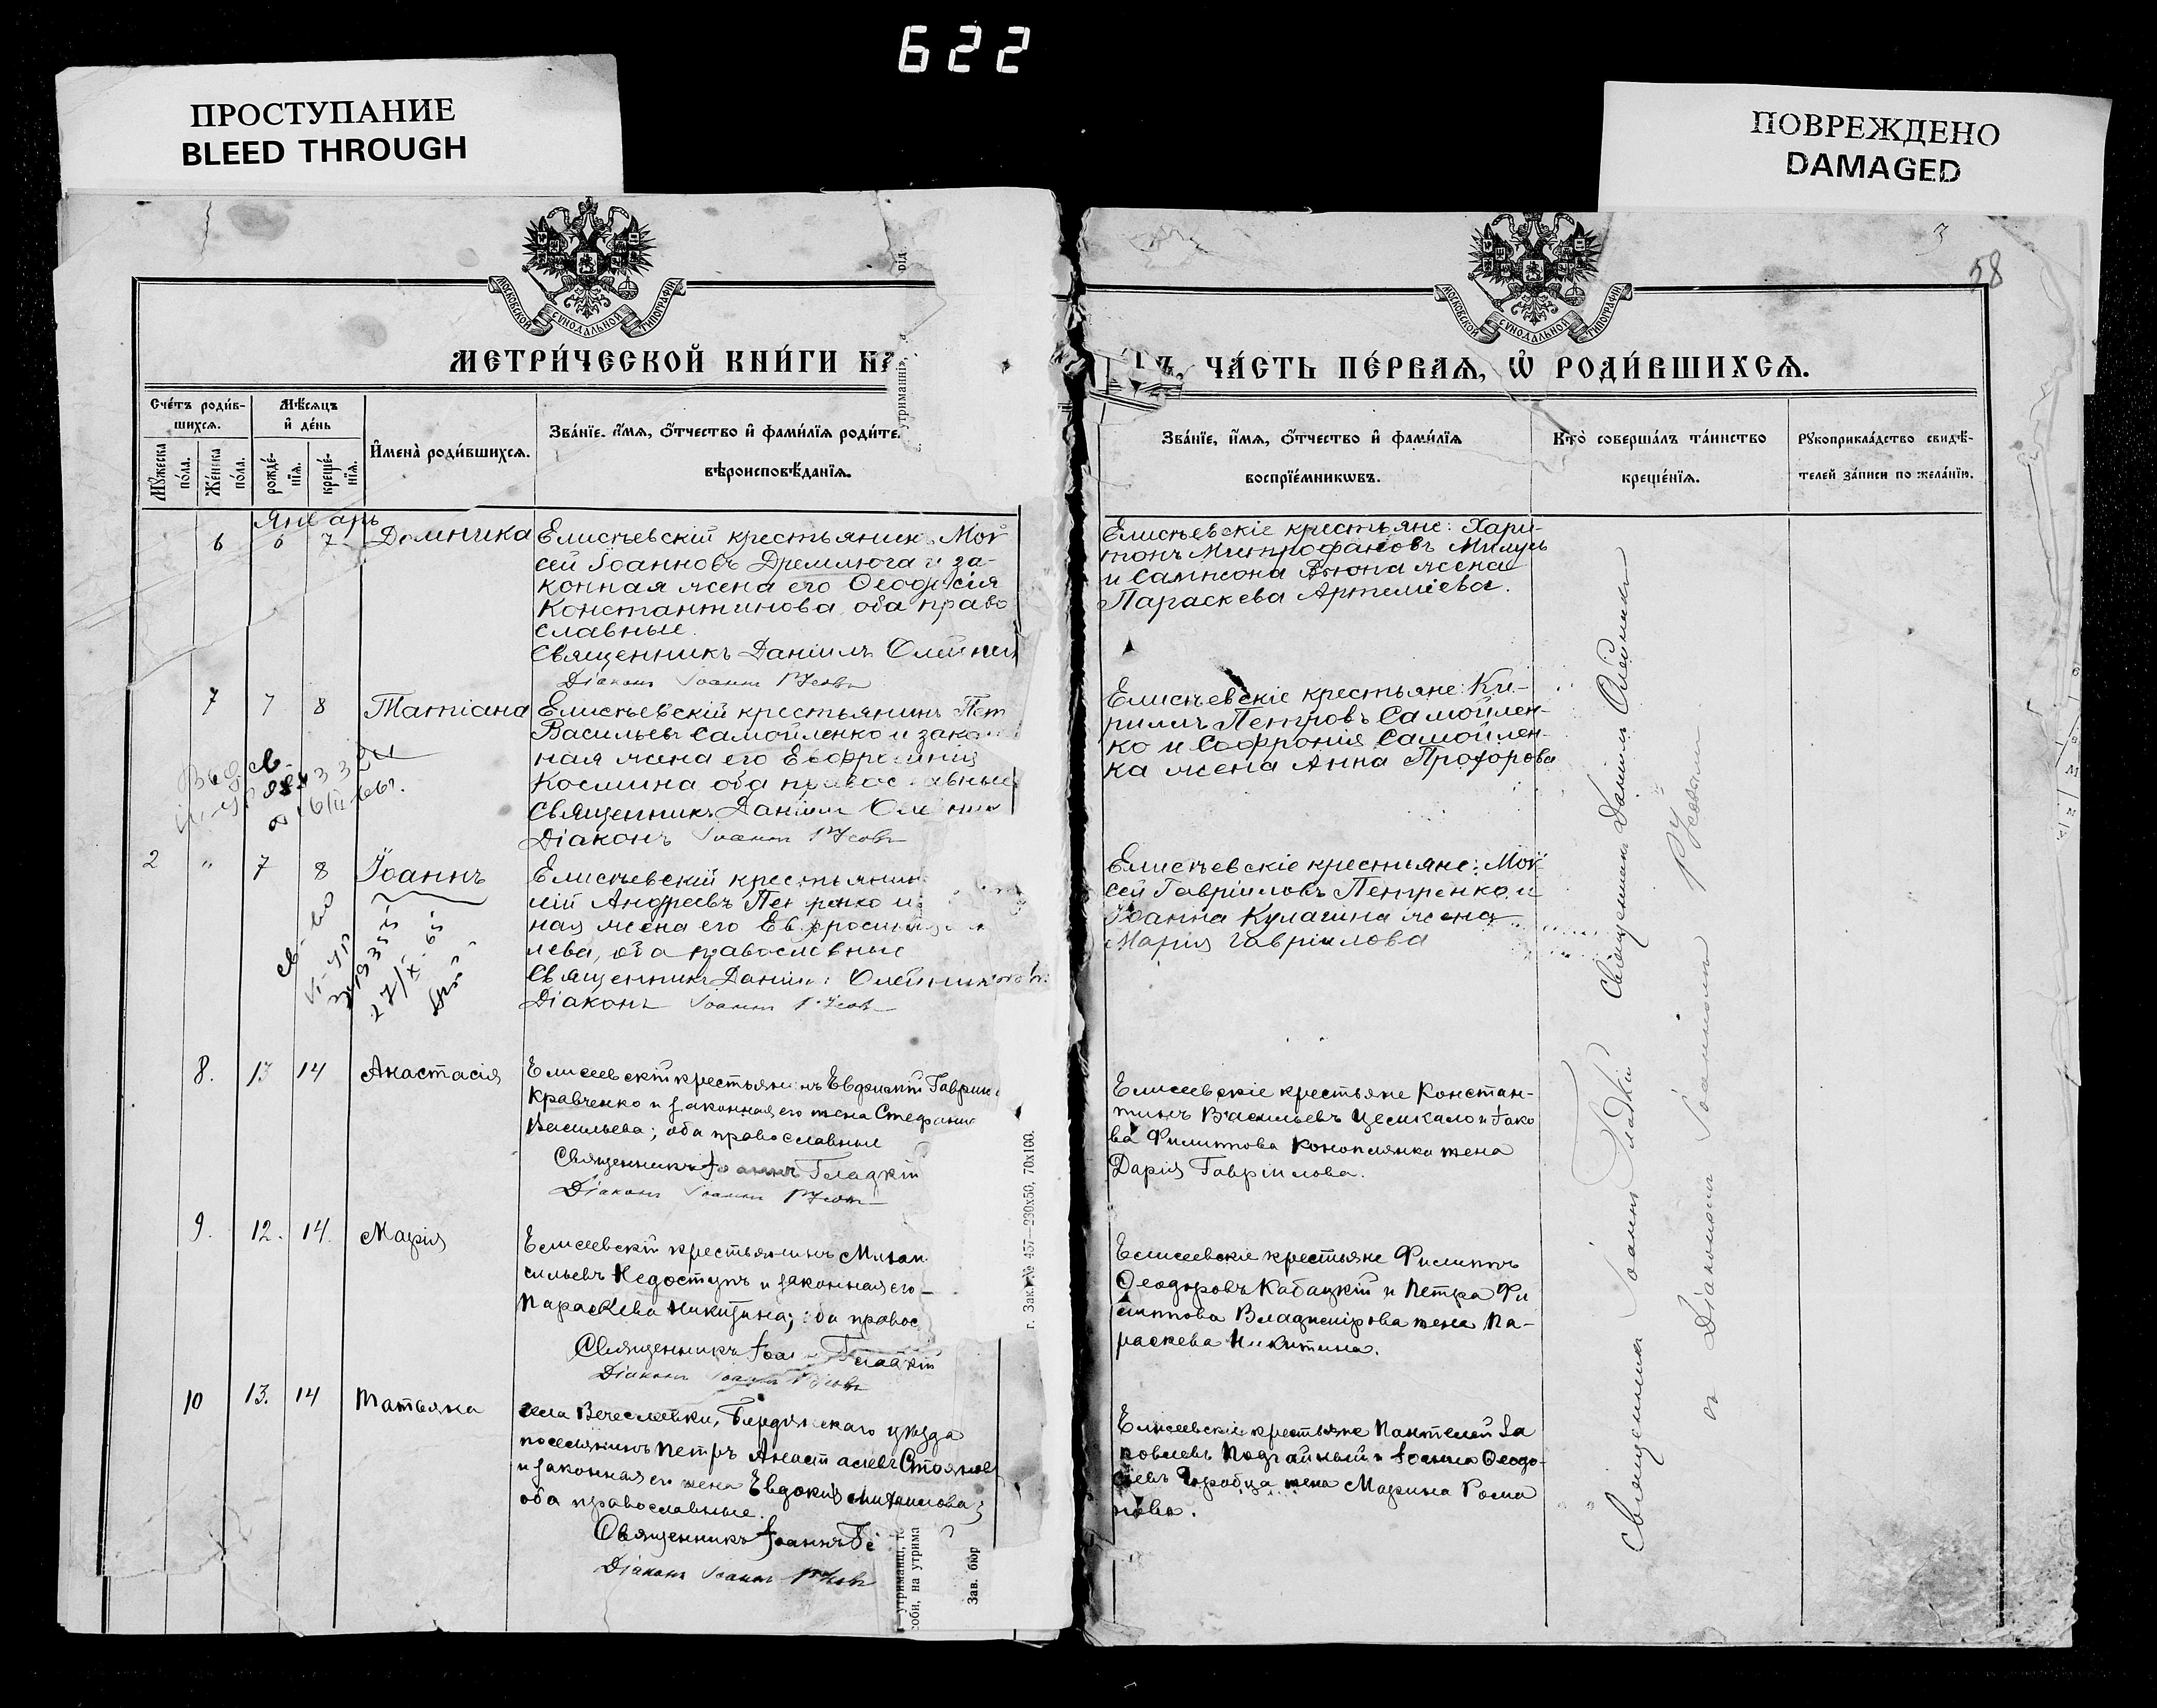 622
ПРОСТУПАНИЕ
BLEED THROUGH
ПОВРЕЖДЕНО
DAMAGED
МОСКОВСКОЙ СѴНОДАЛЬНОЙ ТИПОГРАФІИ
МЕТРИ́ЧЕСКОЙ КНИ́ГИ НА
Сче́тъ роди́в-
шихсѧ.
Мѣ́сѧцъ
и҆ де́нь
Мꙋ́жеска
по́ла.
Же́нска
по́ла.
рожде́-
нїѧ.
креще́-
нїѧ.
И҆мена̀ роди́вшихсѧ.
Зва́нїе, и҆́мѧ, ѻ҆́тчество и҆ фами́лїѧ роди́те
вѣроисповѣ́данїѧ.
Январь
6 6 7 Домника
Елисѣевскій крестьянинъ Мои
сей Іоанновъ Дремлюга и за-
конная жена его Ѳеодосія
Константинова, оба право
славные.
Священникъ Даніилъ Олейни
Діаконъ Іоаннъ Усовъ
7 7 8 Татіана
Елисѣевскій крестьянинъ Пет
Васильевъ Самойленко и закон
ная жена его Евфросинія
Космина оба православные
Священникъ Даніилъ Олейник
Діаконъ Іоаннъ Усовъ
2 " 7 8 Іоаннъ
Елисѣевскій крестьянин
лій Андреевъ Петренко и
ная жена его Евфросинія
лева, оба православные
Священникъ Даніилъ Олейниковъ
Діаконъ Іоаннъ Усовъ
8. 13 14 Анастасія
Елисеевскій крестьянинъ Евдокій Гаврии
Кравченко и законная его жена Стефани
Васильева; оба православные
Священникъ Іоаннъ Гладкій
Діаконъ Іоаннъ Усовъ
9. 12. 14. Марія
Елисеевскій крестьянинъ Михаи
сильевъ Недоступъ и законная его
Параскева Никитина; оба правос
Священникъ Іоа Гладкій
Діаконъ Іоаннъ Усовъ
10 13. 14 Татьяна
села Вячеславки, Бердянскаго уѣзда
поселянинъ Петръ Анастасіевъ Стоянов
и законная его жена Евдокія Михаилова;
оба православные.
Священникъ Іоаннъ Г
Діаконъ Іоаннъ Усовъ
г. Зак. № 457—230х50, 70х100.
Зав. бюр
3
58
МОСКОВСКОЙ СѴНОДАЛЬНОЙ ТИПОГРАФІИ
Ъ, ЧА́СТЬ ПЕ́РВАѦ, Ѽ РОДИ́ВШИХСѦ.
Зва́нїе, и҆́мѧ, ѻ҆́тчество и҆ фами́лїѧ
воспрїе́мникѡвъ.
Кто̀ соверша́лъ та́инство
креще́нїѧ.
Рꙋкоприкла́дство свидѣ́-
телей за́писи по жела́нїю.
Елисѣевскіе крестьяне: Хари-
тонъ Митрофановъ Милусь
и Сампсона Вьюна жена
Параскева Артеміева.
Елисѣевскіе крестьяне: Ки-
риллъ Петровъ Самойлен-
ко и Софронія Самойлен-
ка жена Анна Прохорова
Елисѣевскіе крестьяне: Мои-
сей Гавріиловъ Петренко и
Іоанна Кулагина жена
Марія Гавріилова
Елисеевскіе крестьяне Констан-
тинъ Васильевъ Цесикало и Іако
ва Филиппова Коноплянко жена
Дарія Гавріилова.
Елисеевскіе крестьяне Филиппъ
Ѳеодоровъ Кабацкій и Петра Фи
липпова Владимірова жена Па-
раскева Никитина.
Елисеевскіе крестьяне Пантелей Іа
ковлевъ Подгайный и Іоанна Ѳеодо-
сіевъ Горобца жена Марина Рома
нова.
Священникъ Даніилъ Олейников
Священникъ Іоаннъ Гладкій
съ Діакономъ Іоанномъ Усовымъ